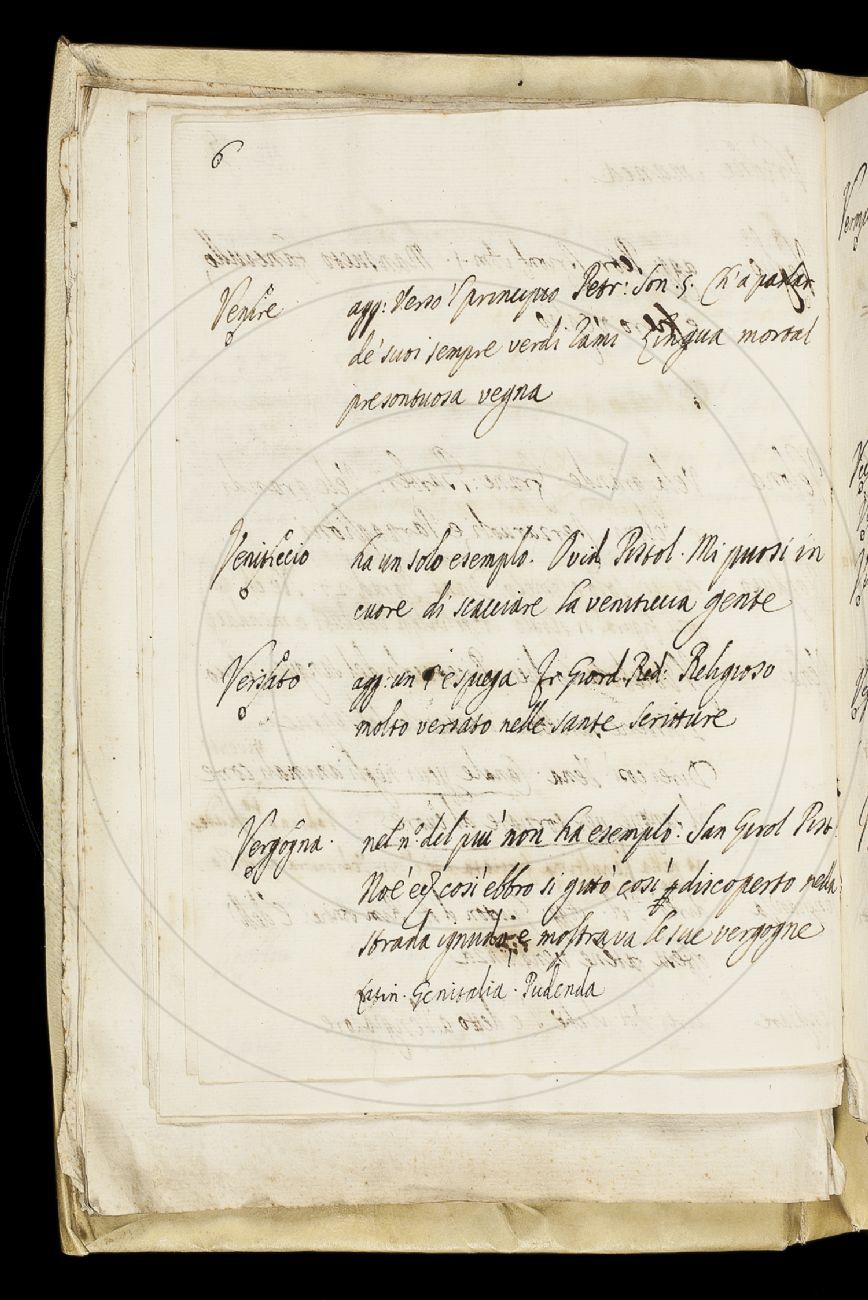 6
Venire agg: verso 'l principio Petr: Son. 5. Ch'a parlar
de' suoi sempre verdi rami Lingua mortal
presontuosa vegna
Veniticcio ha un solo esemplo. Ovid. Pistol. Mi puosi in
cuore di scacciare la veniticcia gente
Versato agg: un Fr Giord. Red: Religioso
molto versato nelle sante scritture
Vergogna. nel n.o del piu' non ha esemplo: San Girol Pist
Noè così ebbro si gittò così discoperto nella
strada ignudo e mostrava le sue vergogne
Latin. Genitalia. Pudenda